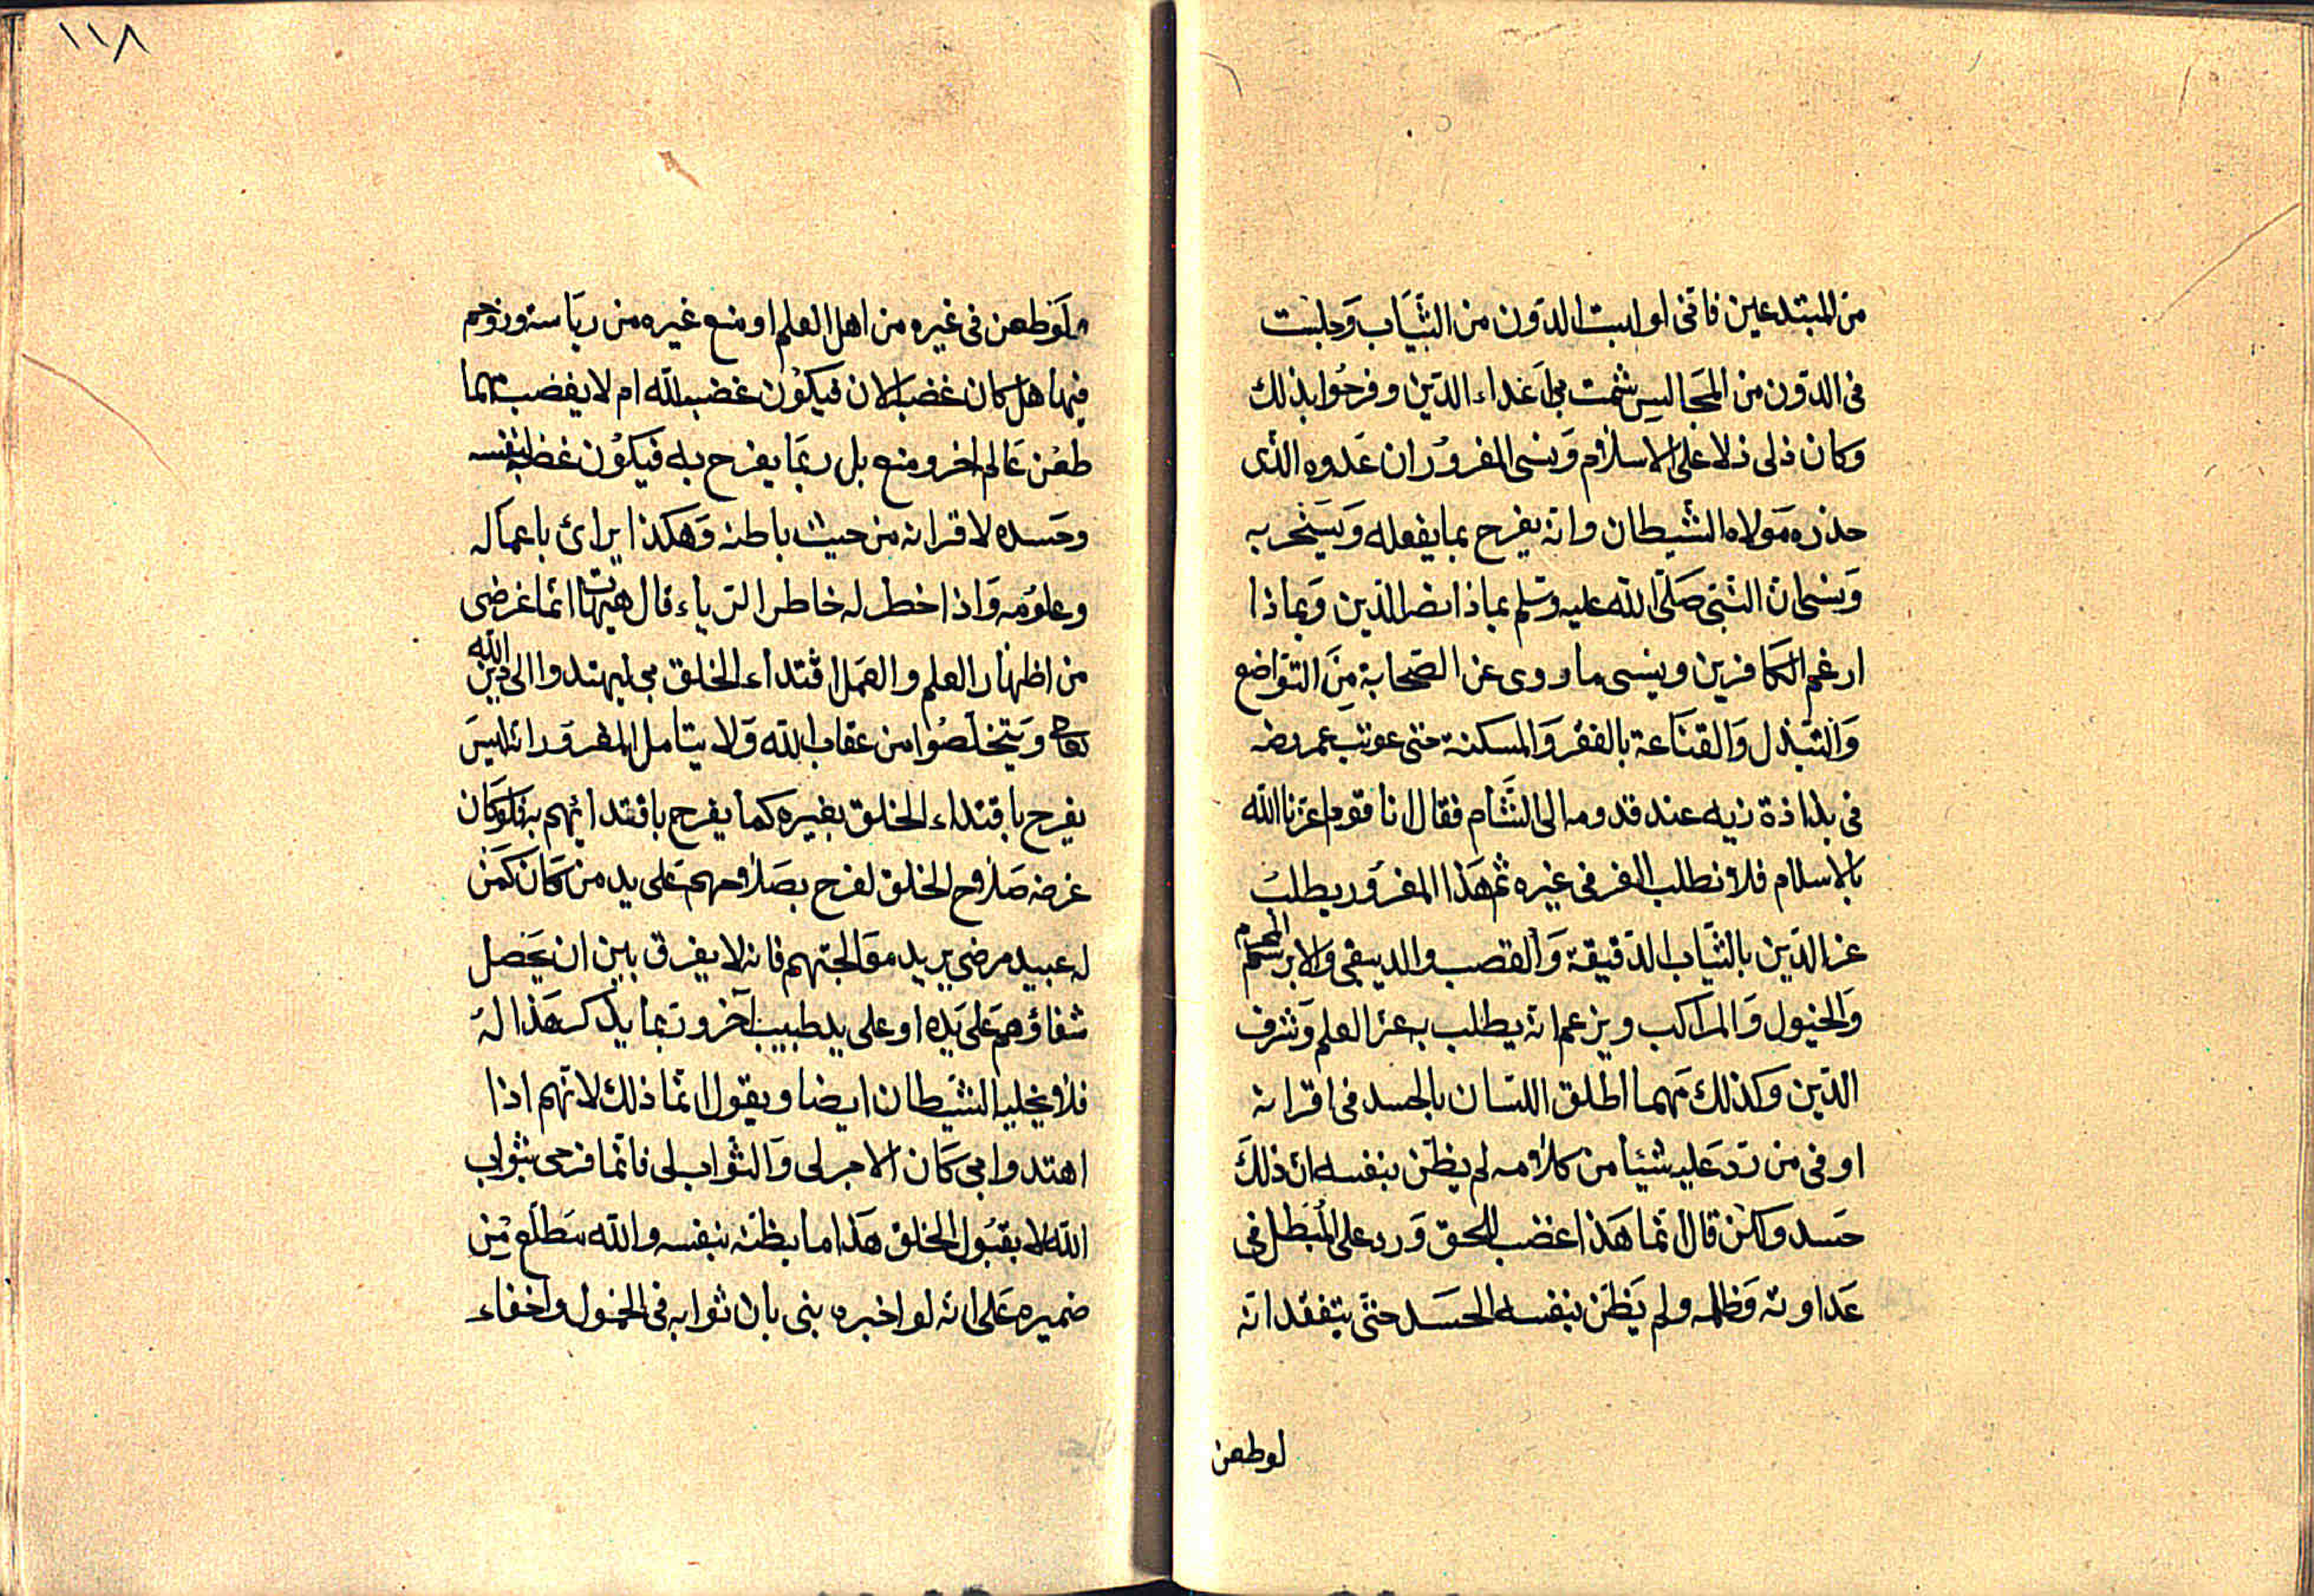 من المبتدعين فانى لو لبست الدون من الثياب وجلست
فى الدون من المجالس شمت بى اعداء الدين وفرحوا بذلك
وكان ذلى ذلا على الاسلام ونسى المغرور ان عدوه الذى
حذره مولاه الشيطان وانه يفرح بما يفعله ويسخر به
وينسى ان النبى صلى الله عليه وسلم بماذا نصر الدين وبماذا
ارغم الكافرين وينسى ما روى عن الصحابة من التواضع
والتبذل والقناعة بالفقر والمسكنة حتى عوتب عمر رضه
فى بذاذة زيه عند قدومه الى الشام فقال انا قوم اعزنا الله
بالاسلام فلا نطلب العز فى غيره ثم هذا المغرور يطلب
عز الدين بالثياب الدقيقة والقصب والديبقى والابريسم المحرم
والخيول والمراكب ويزعم انه يطلب به عز العلم وشرف
الدين وكذلك مهما اطلق اللسان بالحسد فى اقرانه
او فى من رد عليه شيئا من كلامه لم يظن بنفسه ان ذلك
حسد ولكن قال انما هذا غضب للحق ورد على المبطل فى
عداوته وظلمه ولم يظن بنفسه الحسد حتى يتفقد انه
لو طعن
١١٨
لو طعن فى غيره من اهل العلم او منع غيره من رياسة وزوحم
فيها هل كان غضبه الان فيكون غضبه لله ام لا يغضب مهما
طعن عالم اخر ومنع بل ربما يفرح به فيكون غضبه لنفسه
وحسده لاقرانه من حيث باطنه وهكذا يرائ باعماله
وعلومه واذا خطر له خاطر الرياء قال هيهات انما غرضى
من اظهار العلم والعمل اقتداء الخلق بى ليهتدوا الى دين الله
تعالى ويتخلصوا من عقاب الله ولا يتامل المغرور انه ليس
يفرح باقتداء الخلق بغيره كما يفرح باقتدائهم به فلو كان
غرضه صلاح الخلق لفرح بصلاحهم على يد من كان كمن
له عبيد مرضى يريد معالجتهم فانه لا يفرق بين ان يحصل
شفاؤهم على يده او على يد طبيب آخر وربما يذكر هذا له
فلا يخليه الشيطان ايضا ويقول انما ذلك لانهم اذا
اهتدوا بى كان الاجر لى والثواب لى فانما فرحى بثواب
الله لا بقبول الخلق هذا ما يظنه بنفسه والله مطلع من
ضميره على انه لو اخبره نبى بان ثوابه فى الخمول واخفاء